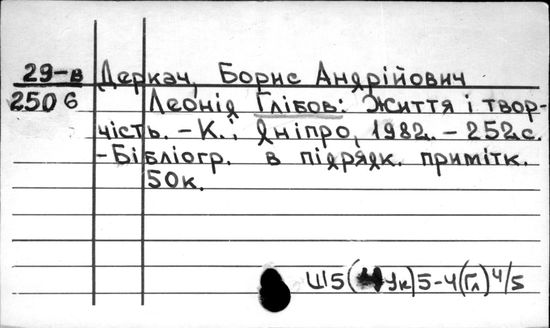 29-в Деркач, Борис Андрійович
2506 Леонід Глібов: Життя і твор-
чість. - К.: Дніпро, 1982. - 252с.
- Бібліогр. в підрядк. примітк.
50к.
Ш5(Ук)5-4(Гл)4/5